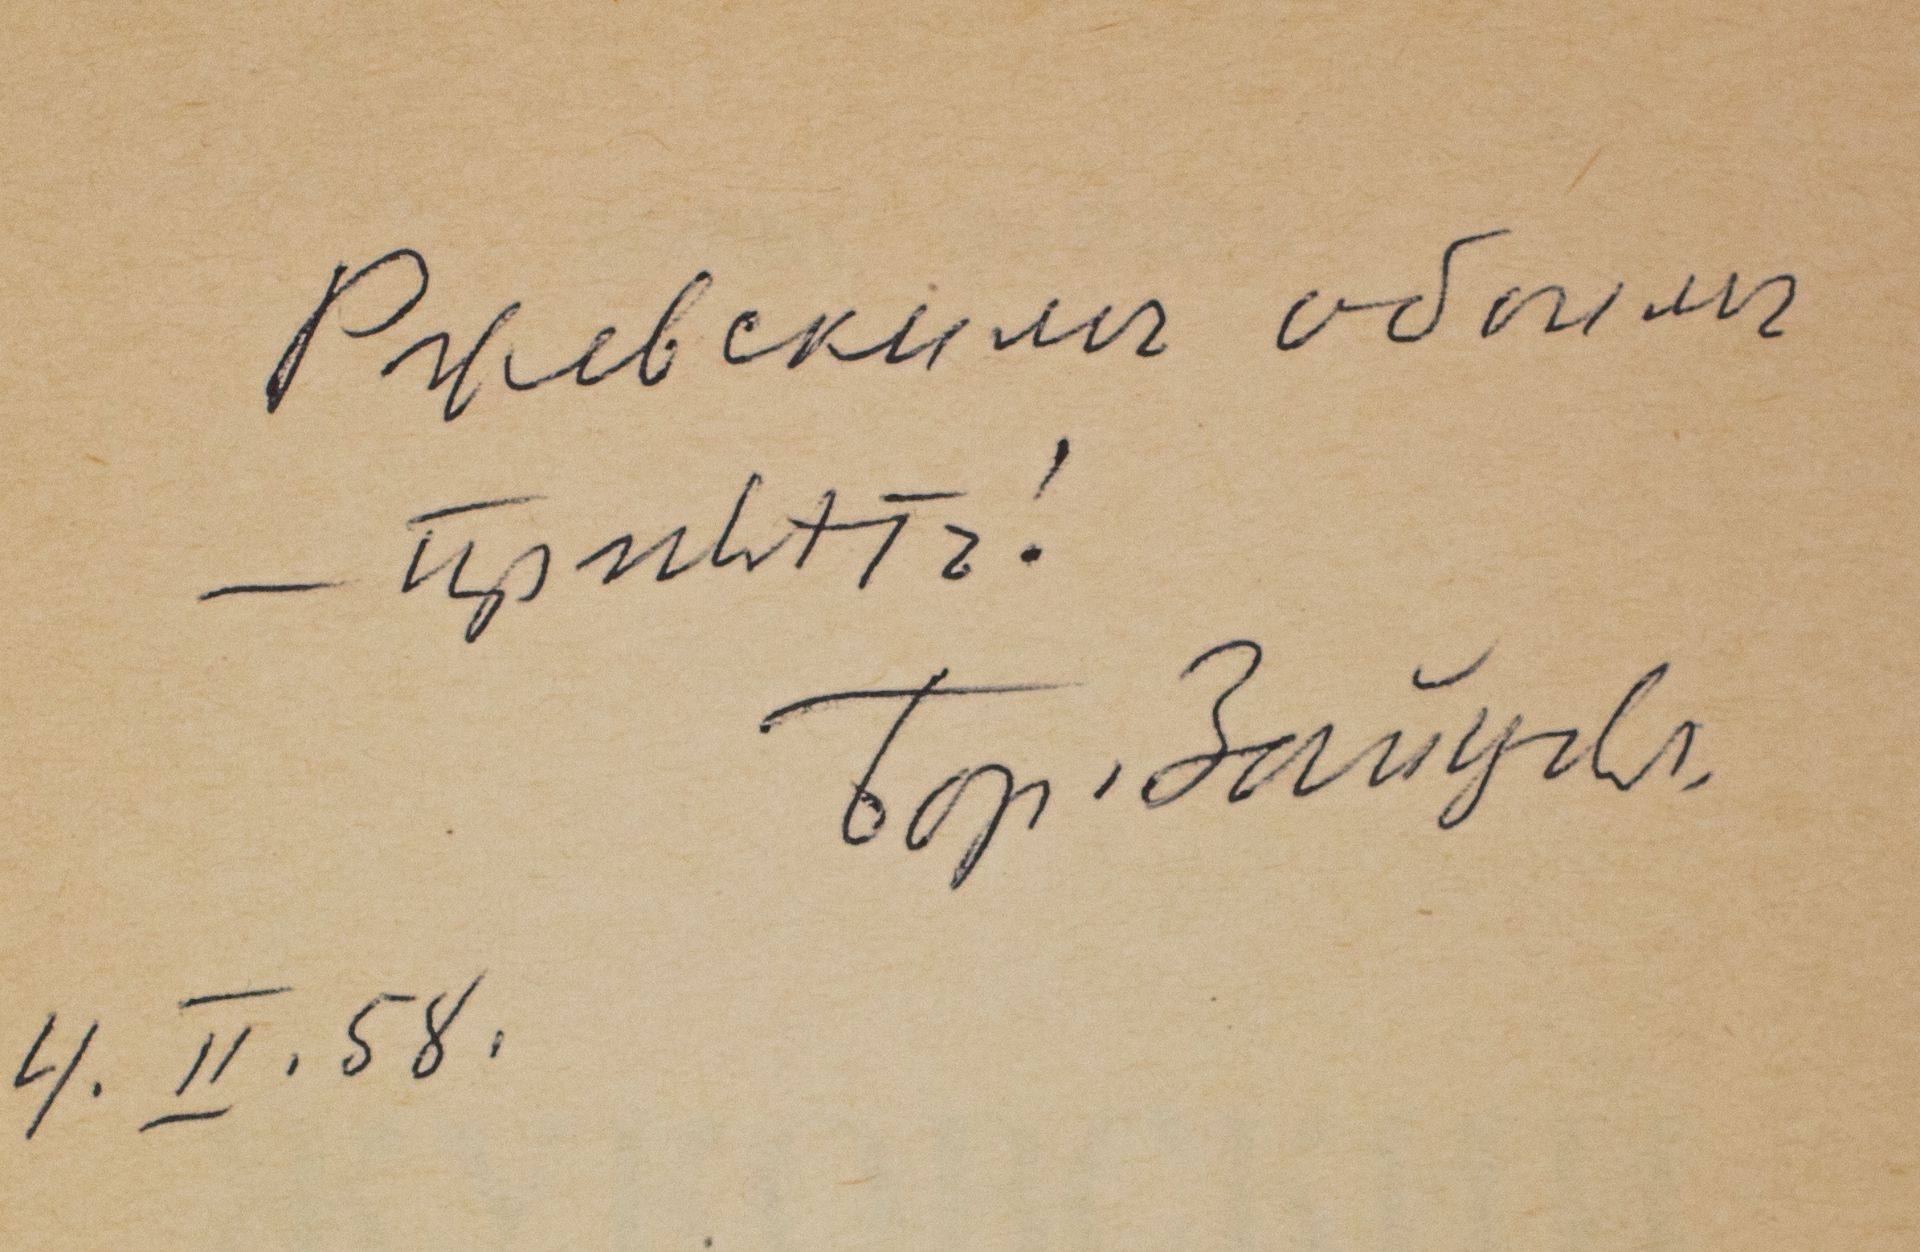 Ржевскимъ обоимъ
— привѣтъ!
Бор. Зайцевъ.
4. II. 58.